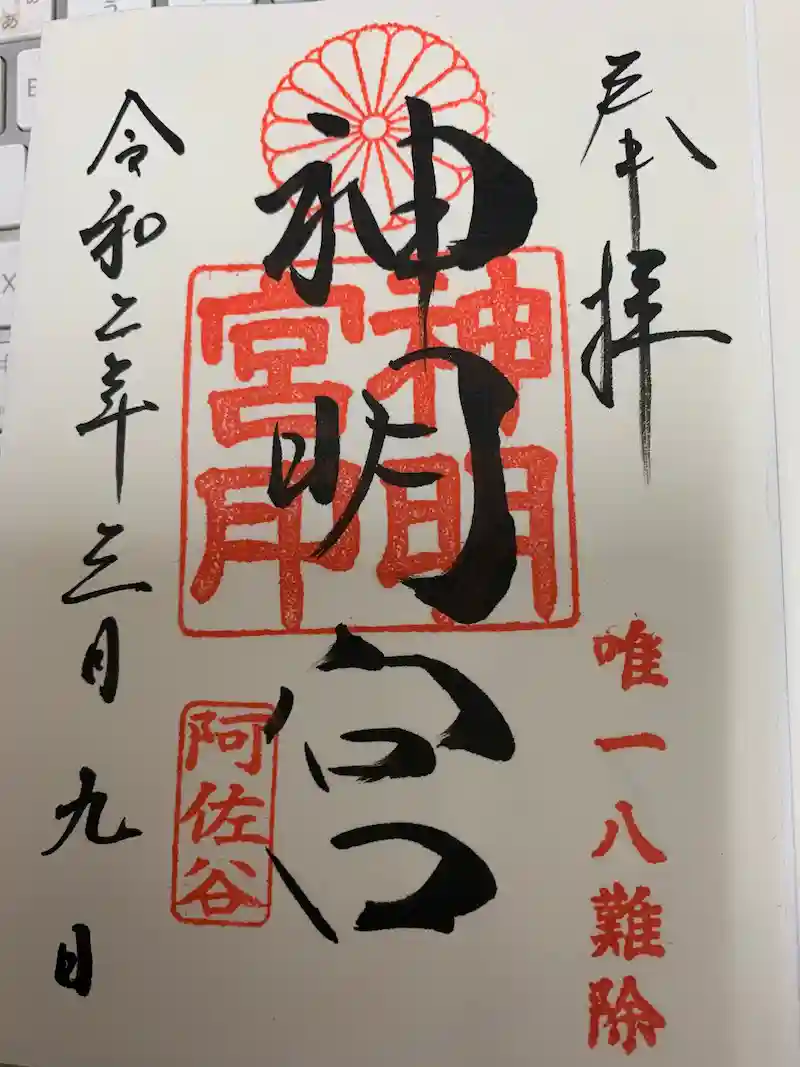 奉拝
唯一八難除
神明宮
神明宮印
阿佐谷
令和二年三月九日